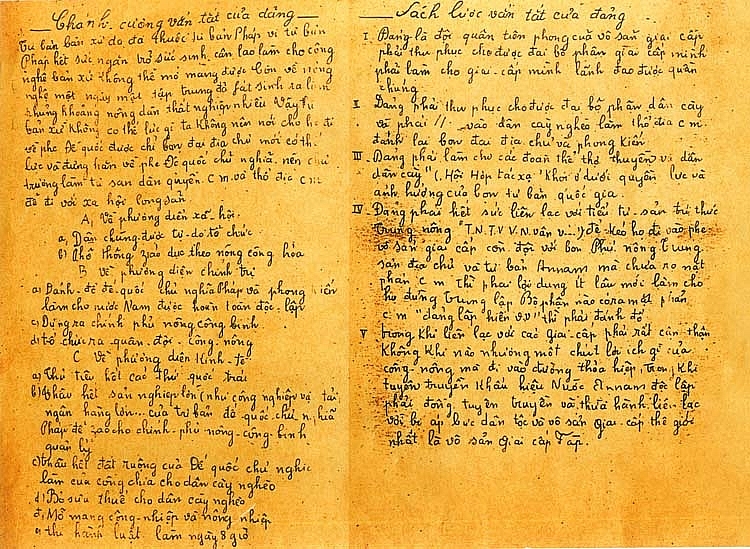 Chánh cương vắn tắt của đảng
Tư bản bản xứ đã thuộc tư bản Pháp vì tư bản
Pháp hết sức ngăn trở sức sinh sản làm cho công
nghệ bản xứ không thể mở mang được. Còn về nông
nghệ một ngày một tập trung đã phát sinh ra lắm
khủng khoảng nông dân thất nghiệp nhiều. Vậy tư
bản xứ không có thế lực gì ta không nên nói cho họ đi
về phe đế quốc được chỉ bọn đại địa chủ mới có thế
lực và đứng hẳn về phe đế quốc chủ nghĩa nên chủ
trương làm tư sản dân quyền c.m và thổ địa c.m
để đi tới xã hội cộng sản
A, Về phương diện xã hội.
a, Dân chúng được tự do tổ chức
b) Phổ thông giáo dục theo nông công hóa
B Về phương diện chính trị
a) Đánh đổ đế quốc chủ nghĩa Pháp và phong kiến
làm cho nước Nam được hoàn toàn độc lập
c) Dựng ra chính phủ nông công binh
d) tổ chức ra quân đội công nông
C Về phương diện Kinh tế
a) Thủ tiêu hết các thứ quốc trái
b) Thâu hết sản nghiệp lớn (như công nghiệp vận tải,
ngân hàng lớn... của tư bản đế quốc chủ nghĩa
Pháp để giao cho chính phủ nông công binh
quản lý
c) Thâu hết đất ruộng của Đế quốc chủ nghĩa
làm của công chia cho dân cày nghèo
d) Bỏ sưu thuế cho dân cày nghèo
đ) Mở mang công nghiệp và nông nghiệp
e) thi hành luật làm ngày 8 giờ
Sách lược vắn tắt của đảng
I. Đảng là đội quân tiên phong của vô sản giai cấp
phải thu phục cho được đại bộ phận giai cấp mình
phải làm cho giai cấp mình lãnh đạo được quần
chúng.
II. Đảng phải thu phục cho được đại bộ phận dân cày
và phải // vào dân cày nghèo làm thổ địa c.m.
đánh lại bọn đại địa chủ và phong kiến
III. Đảng phải làm cho các đoàn thể thợ thuyền và dân
dân cày (Hội Hợp tác xạ) khỏi ở dưới quyền lực và
ảnh hưởng của bọn tư bản quốc gia.
IV. Đảng phải hết sức liên lạc với tiểu tư sản trí thức
trung nông T.N.T.V V.N. vân v...) để kéo họ đi vào phe
vô sản giai cấp còn đối với bọn Phú nông Trung
sản địa chủ và tư bản Annam mà chưa rõ mặt
phản c m thì phải lợi dụng ít lâu mới làm cho
họ đứng trung lập Bộ phận nào ra mặt phản
c m "đảng lập hiến v.v" thì phải đánh đổ
V trong khi liên lạc với các giai cấp phải rất cẩn thận
không khi nào nhường một chút lợi ích gì của
công nông mà đi vào đường thỏa hiệp, trong khi
tuyên truyền khẩu hiệu Nước Annam độc lập
phải đồng tuyên truyền và thừa hành liên lạc
với bị áp bức dân tộc và vô sản giai cấp thế giới
nhất là vô sản giai cấp Tập